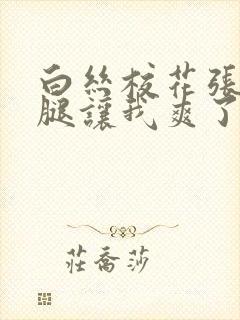 白丝校花张
腿讓我爽了
莊喬莎